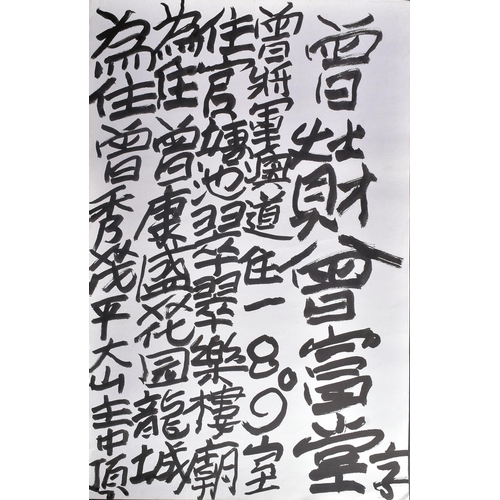 曾灶財曾富堂字
曾將軍澳道住一8.9室
住官塘池翠翠樂樓廟
為住曾康盛花园龍城
為住曾秀茂平大山主中頂